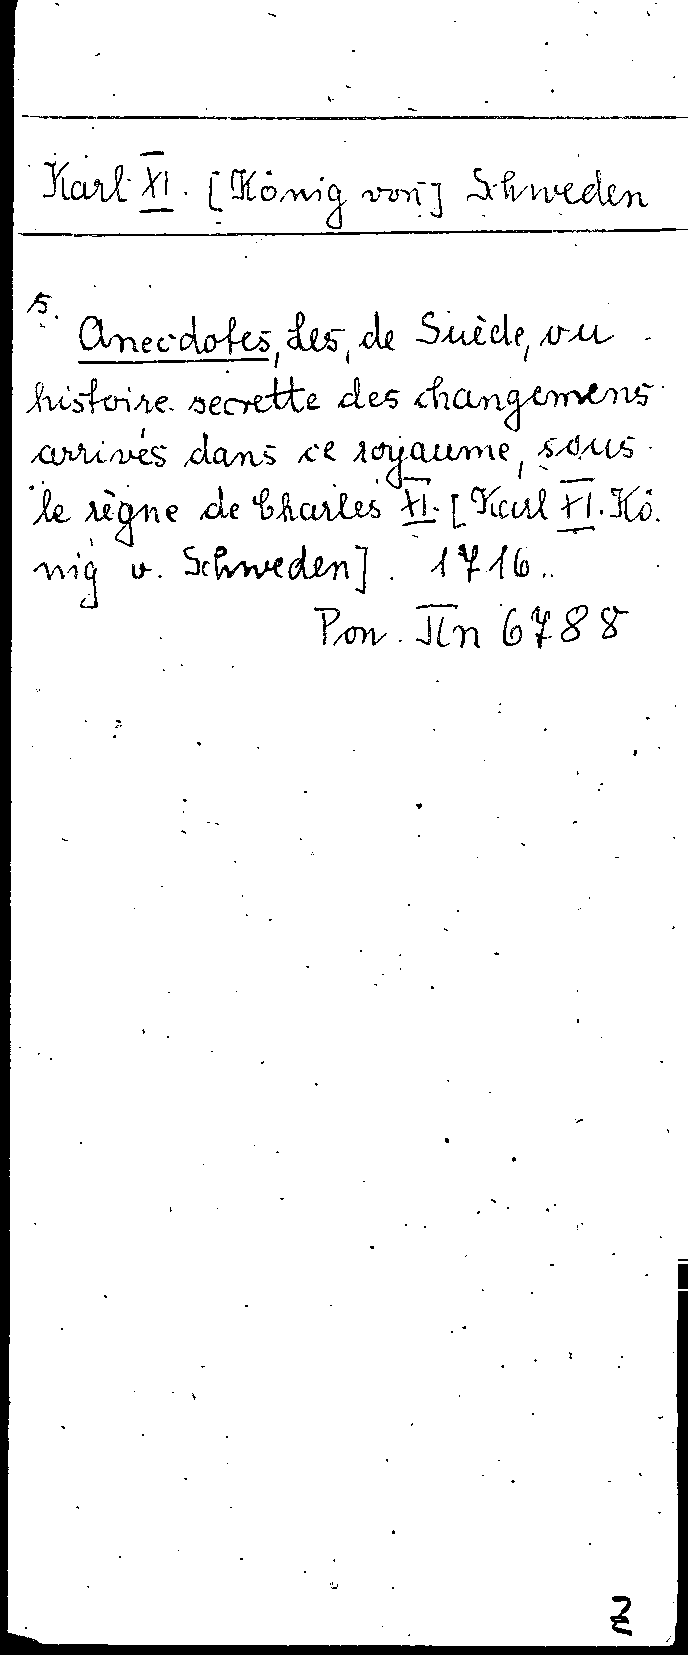 Karl XI. [König von] Schweden
5.
Anecdotes, Les, de Suède, ou
histoire secrette des changemens
arrivés dans ce royaume, sous
le règne de Charles XI. [Karl XI. Kö-
nig v. Schweden]. 1716.
Pon. IIn 6788